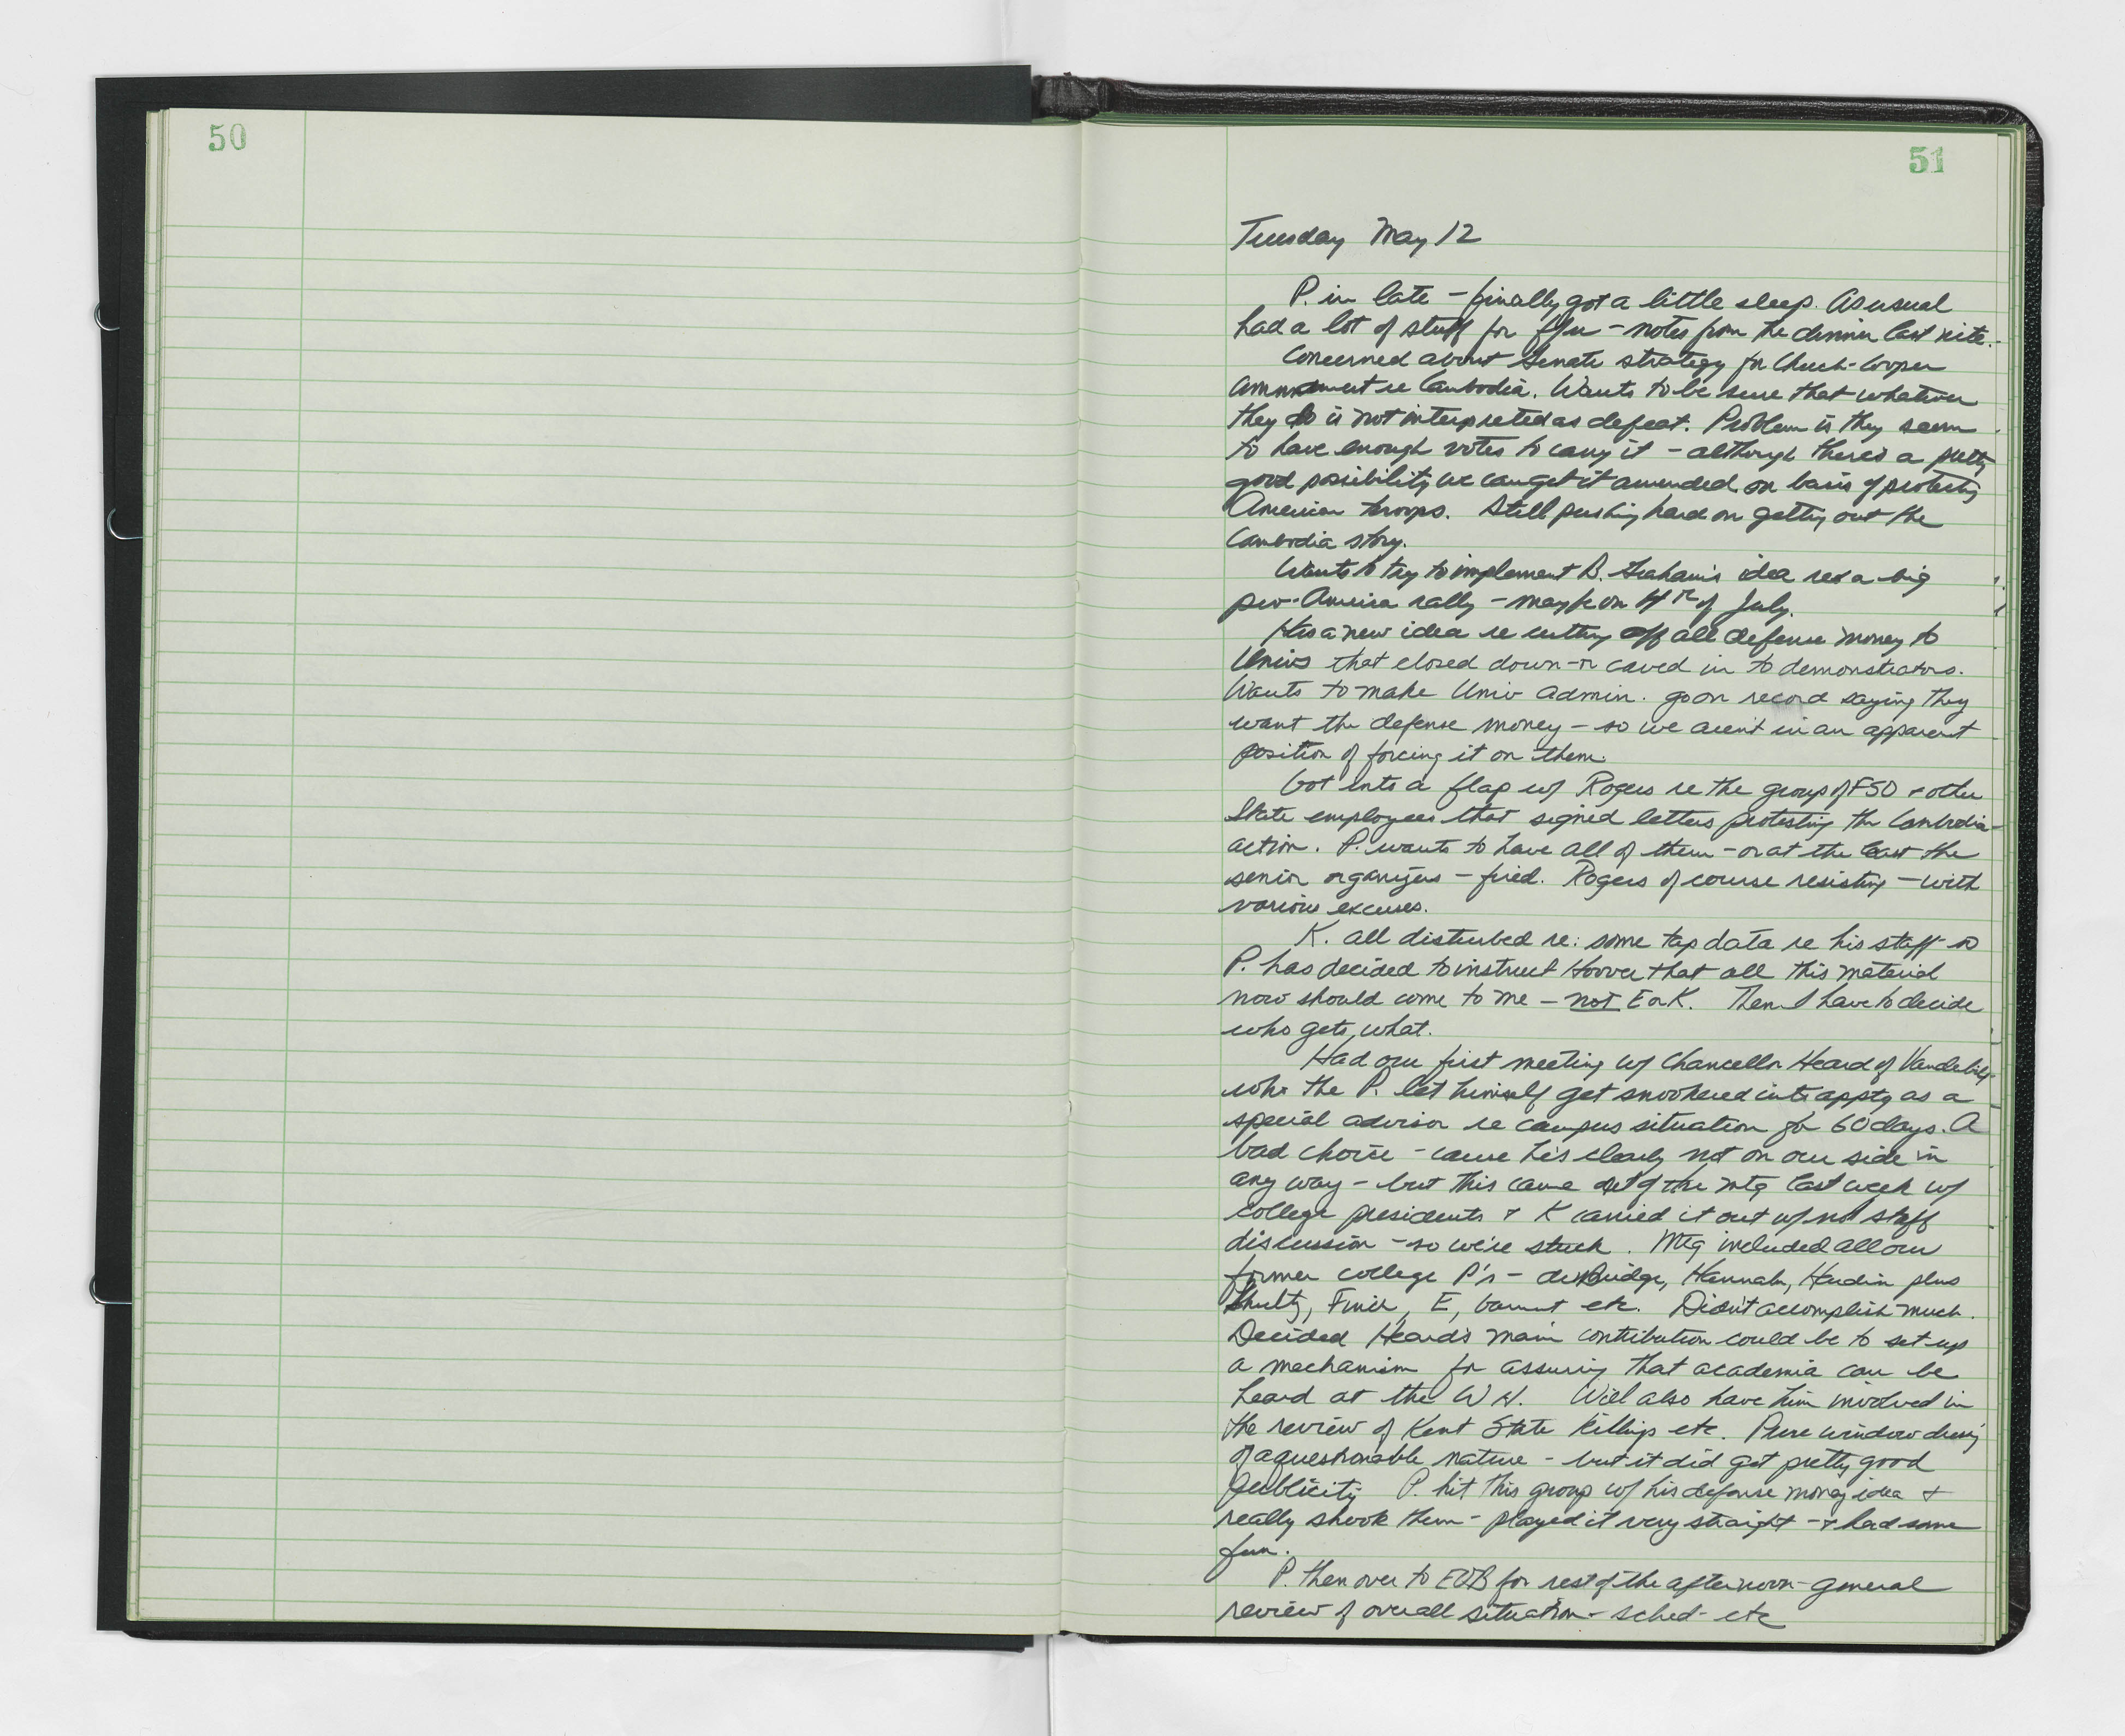 50
51
Tuesday May 12
P. in late - finally got a little sleep. As usual
had a lot of stuff for ffu - notes from the dinner last nite.
Concerned about Senate strategy for Church-Cooper
ammendment re Cambodia. Wants to be sure that whatever
they do is not interpreted as defeat. Problem is they seem
to have enough votes to carry it - although there's a pretty
good possibility we can get it amended on basis of protecting
American troops. Still pushing hard on getting out the
Cambodia story.
Wants to try to implement B. Graham's idea re a big
pro-America rally - maybe on 4th of July.
Has a new idea re cutting off all defense money to
Univs that closed down - or caved in to demonstrators.
Wants to make Univ admin. go on record saying they
want the defense money - so we aren't in an apparent
position of forcing it on them.
Got into a flap w/ Rogers re the group of FSO + other
State employees that signed letters protesting the Cambodia
action. P. wants to have all of them - or at the least the
senior organizers - fired. Rogers of course resisting - with
various excuses.
K. all disturbed re: some tap data re his staff - so
P. has decided to instruct Hoover that all this material
now should come to me - not E or K. Then I have to decide
who gets what.
Had our first meeting w/ Chancellor Heard of Vanderbilt
who the P. let himself get snookered into apptg as a
special advisor re campus situation for 60 days. A
bad choice - cause he's clearly not on our side in
any way - but this came out of the mtg last week w/
college presidents + K carried it out w/ no staff
discussion - so we're stuck. Mtg included all our
former college P's - duBridge, Hannah, Hardin plus
Shultz, Finch, E, Garment etc. Didn't accomplish much.
Decided Heard's main contribution could be to set up
a mechanism for assuring that academia can be
heard at the W H. Will also have him involved in
the review of Kent State killings etc. Pure window dressing
of a questionable nature - but it did get pretty good
publicity P. hit this group w/ his defense money idea +
really shook them - played it very straight - + had some
fun.
P. then over to EOB for rest of the afternoon - general
review of overall situation - sched - etc